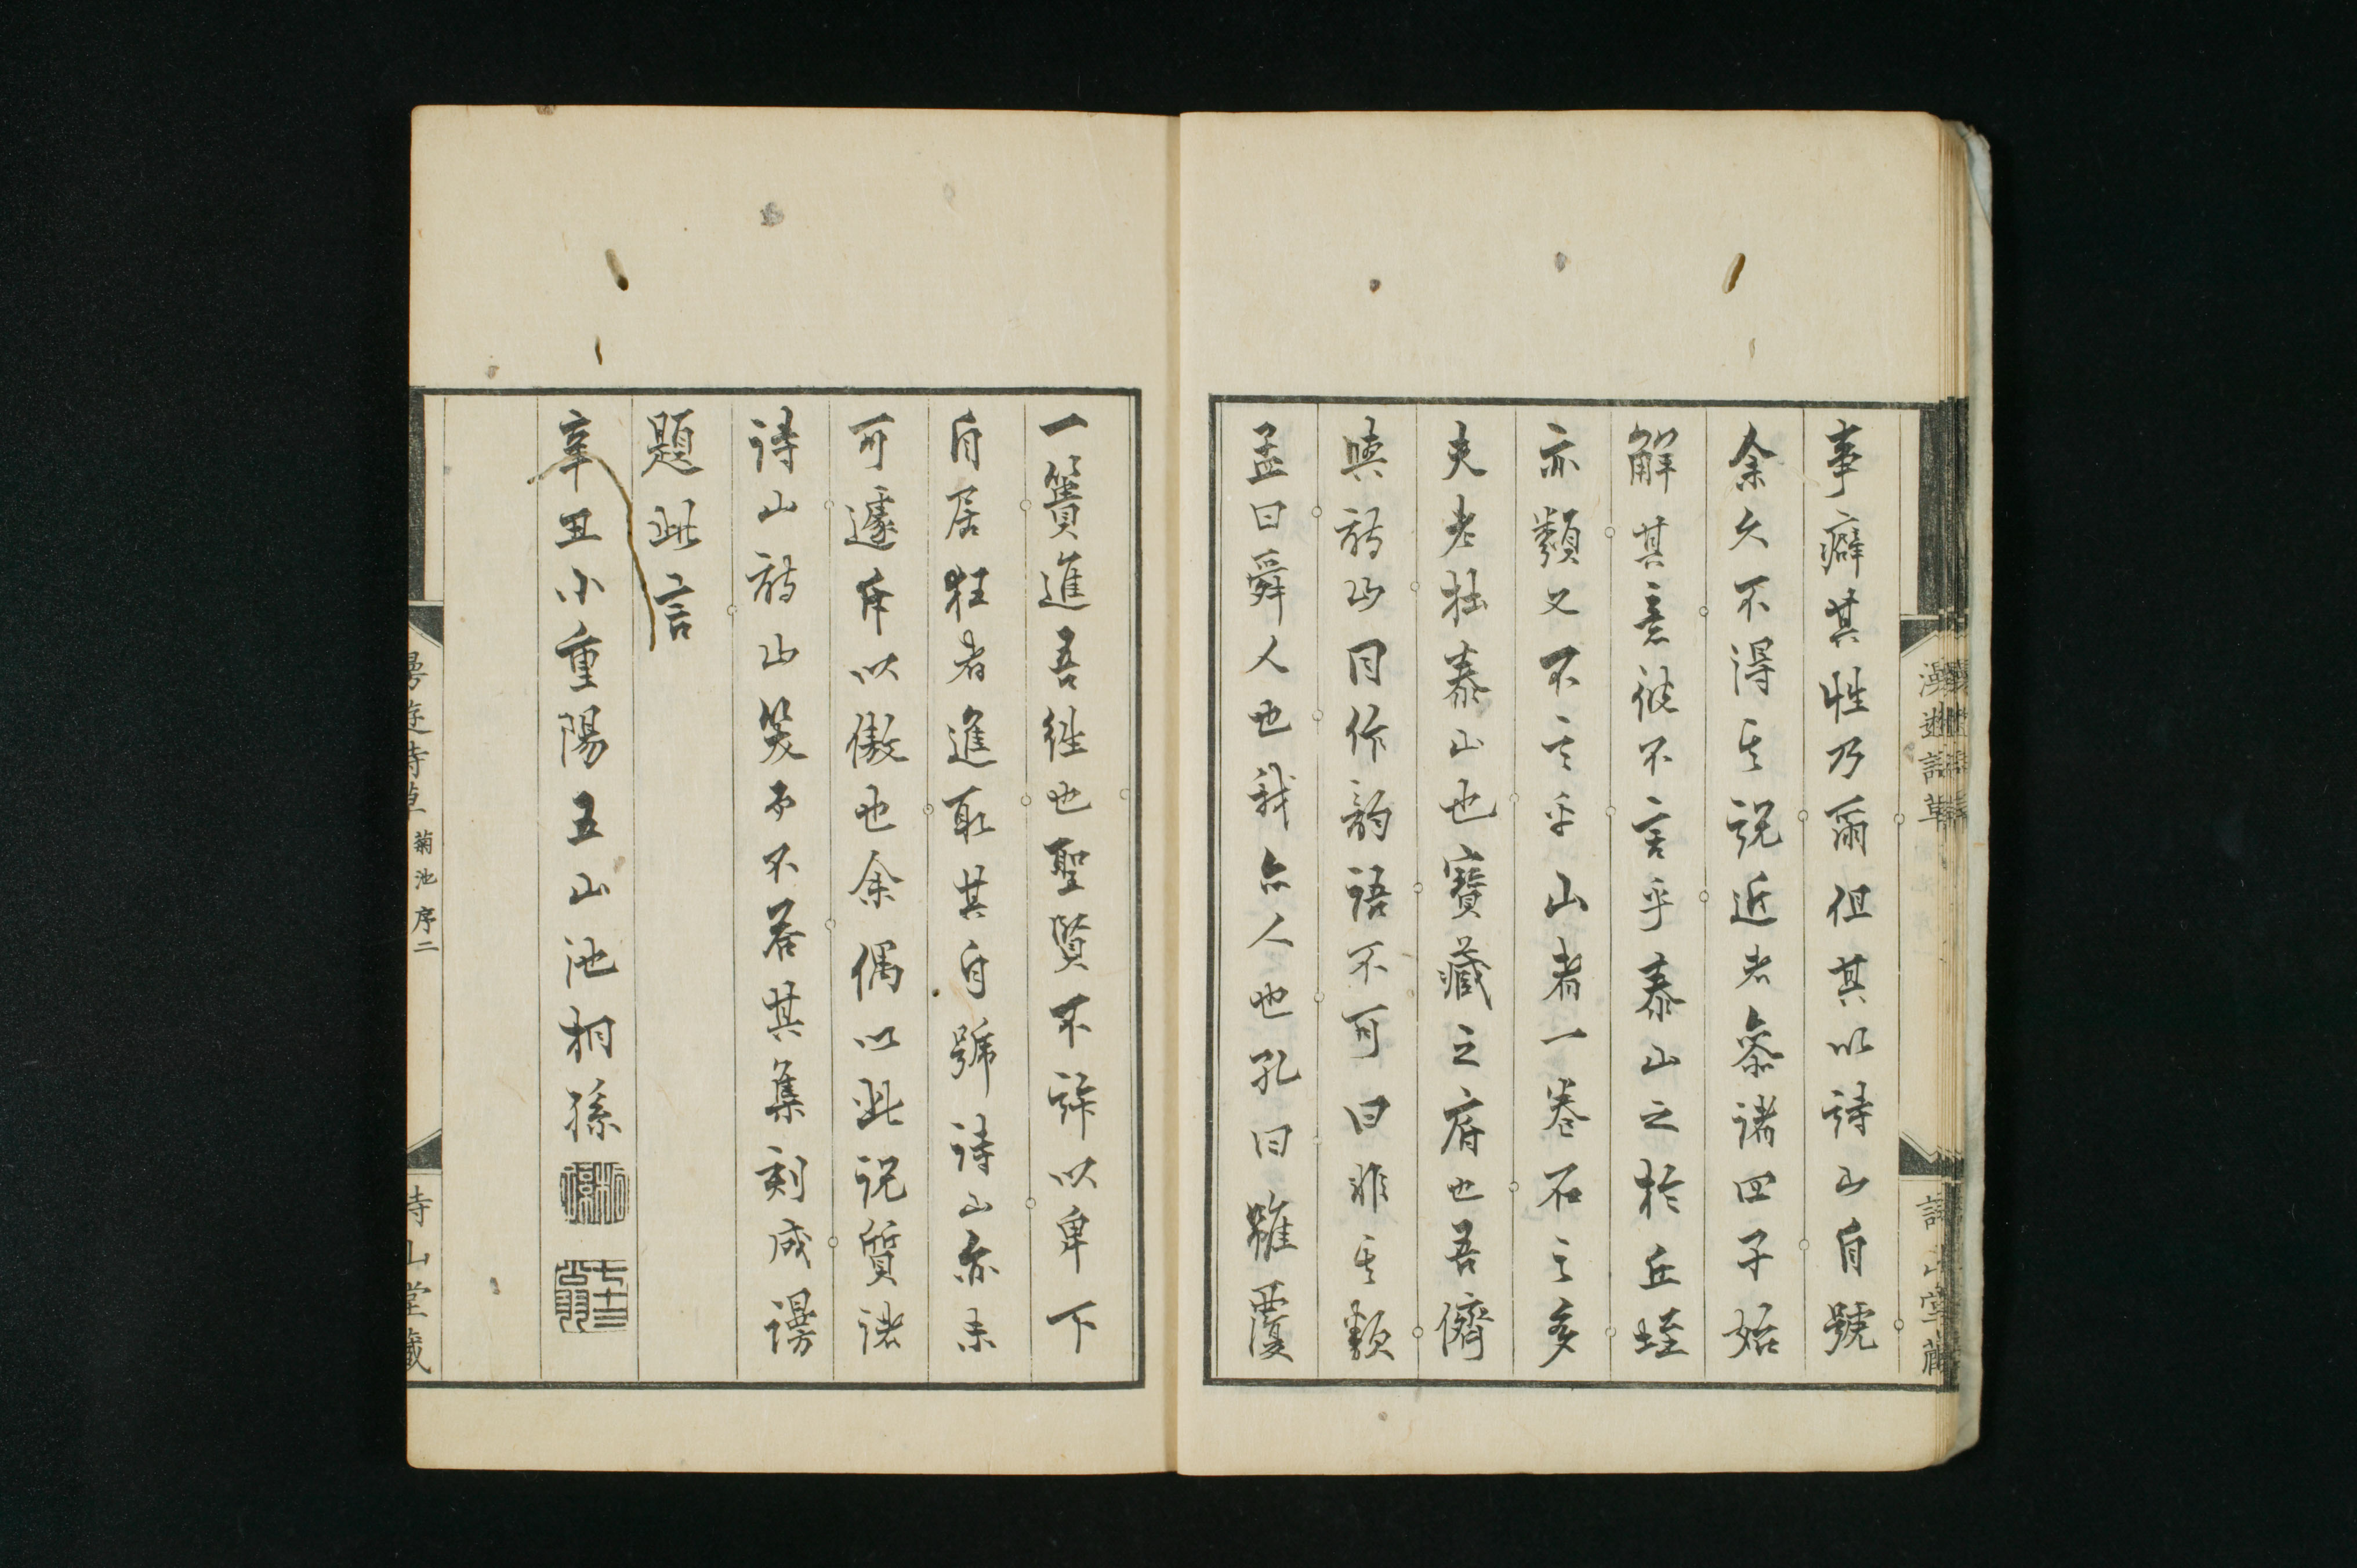 事癖其性乃爾但其以詩山自號
余久不得其説近者參諸四子始
解其意彼不言乎泰山之於丘垤
亦類又不言乎山者一卷石之多
夫老杜泰山也寶藏之府也吾儕
與詩山同作韵語不可曰非其類
孟曰舜人也我亦人也孔曰雖覆
一簣進吾往也聖賢不許以卑下
自居狂者進取其自號詩山亦未
可遽斥以傲也余偶以此説質諸
詩山詩山笑而不答其集刻成謾
題此言
辛丑小重陽五山池桐孫
漫遊詩草 菊池序二
詩山堂藏